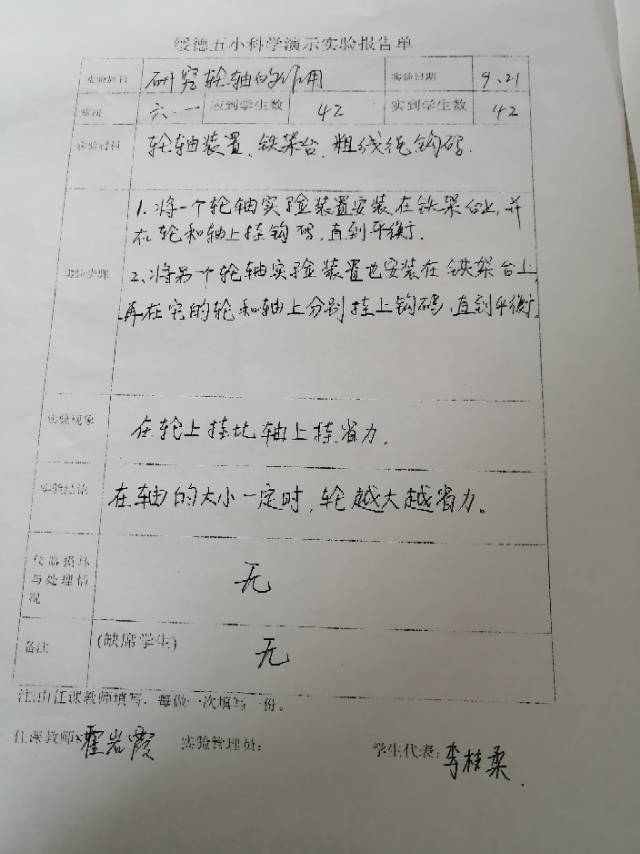 绥德五小科学演示实验报告单
实验题目 研究轮轴的作用 实验日期 9.21
班级 六.一 应到学生数 42 实到学生数 42
实验材料 轮轴装置、铁架台、粗线绳钩码.
1.将一个轮轴实验装置安装在铁架台上,并
在轮和轴上挂钩码,直到平衡.
实验步骤 2、将另个轮轴实验装置也安装在铁架台上,
再在它的轮和轴上分别挂上钩码,直到平衡.
实验现象 在轮上挂比轴上挂省力.
实验结论 在轴的大小一定时,轮越大越省力。
仪器损坏
与处理情 无
况
备注 (缺席学生) 无
注:由任课教师填写,每做一次填写一份。
任课教师:霍岩霞 实验管理员: 学生代表:李桂柔.